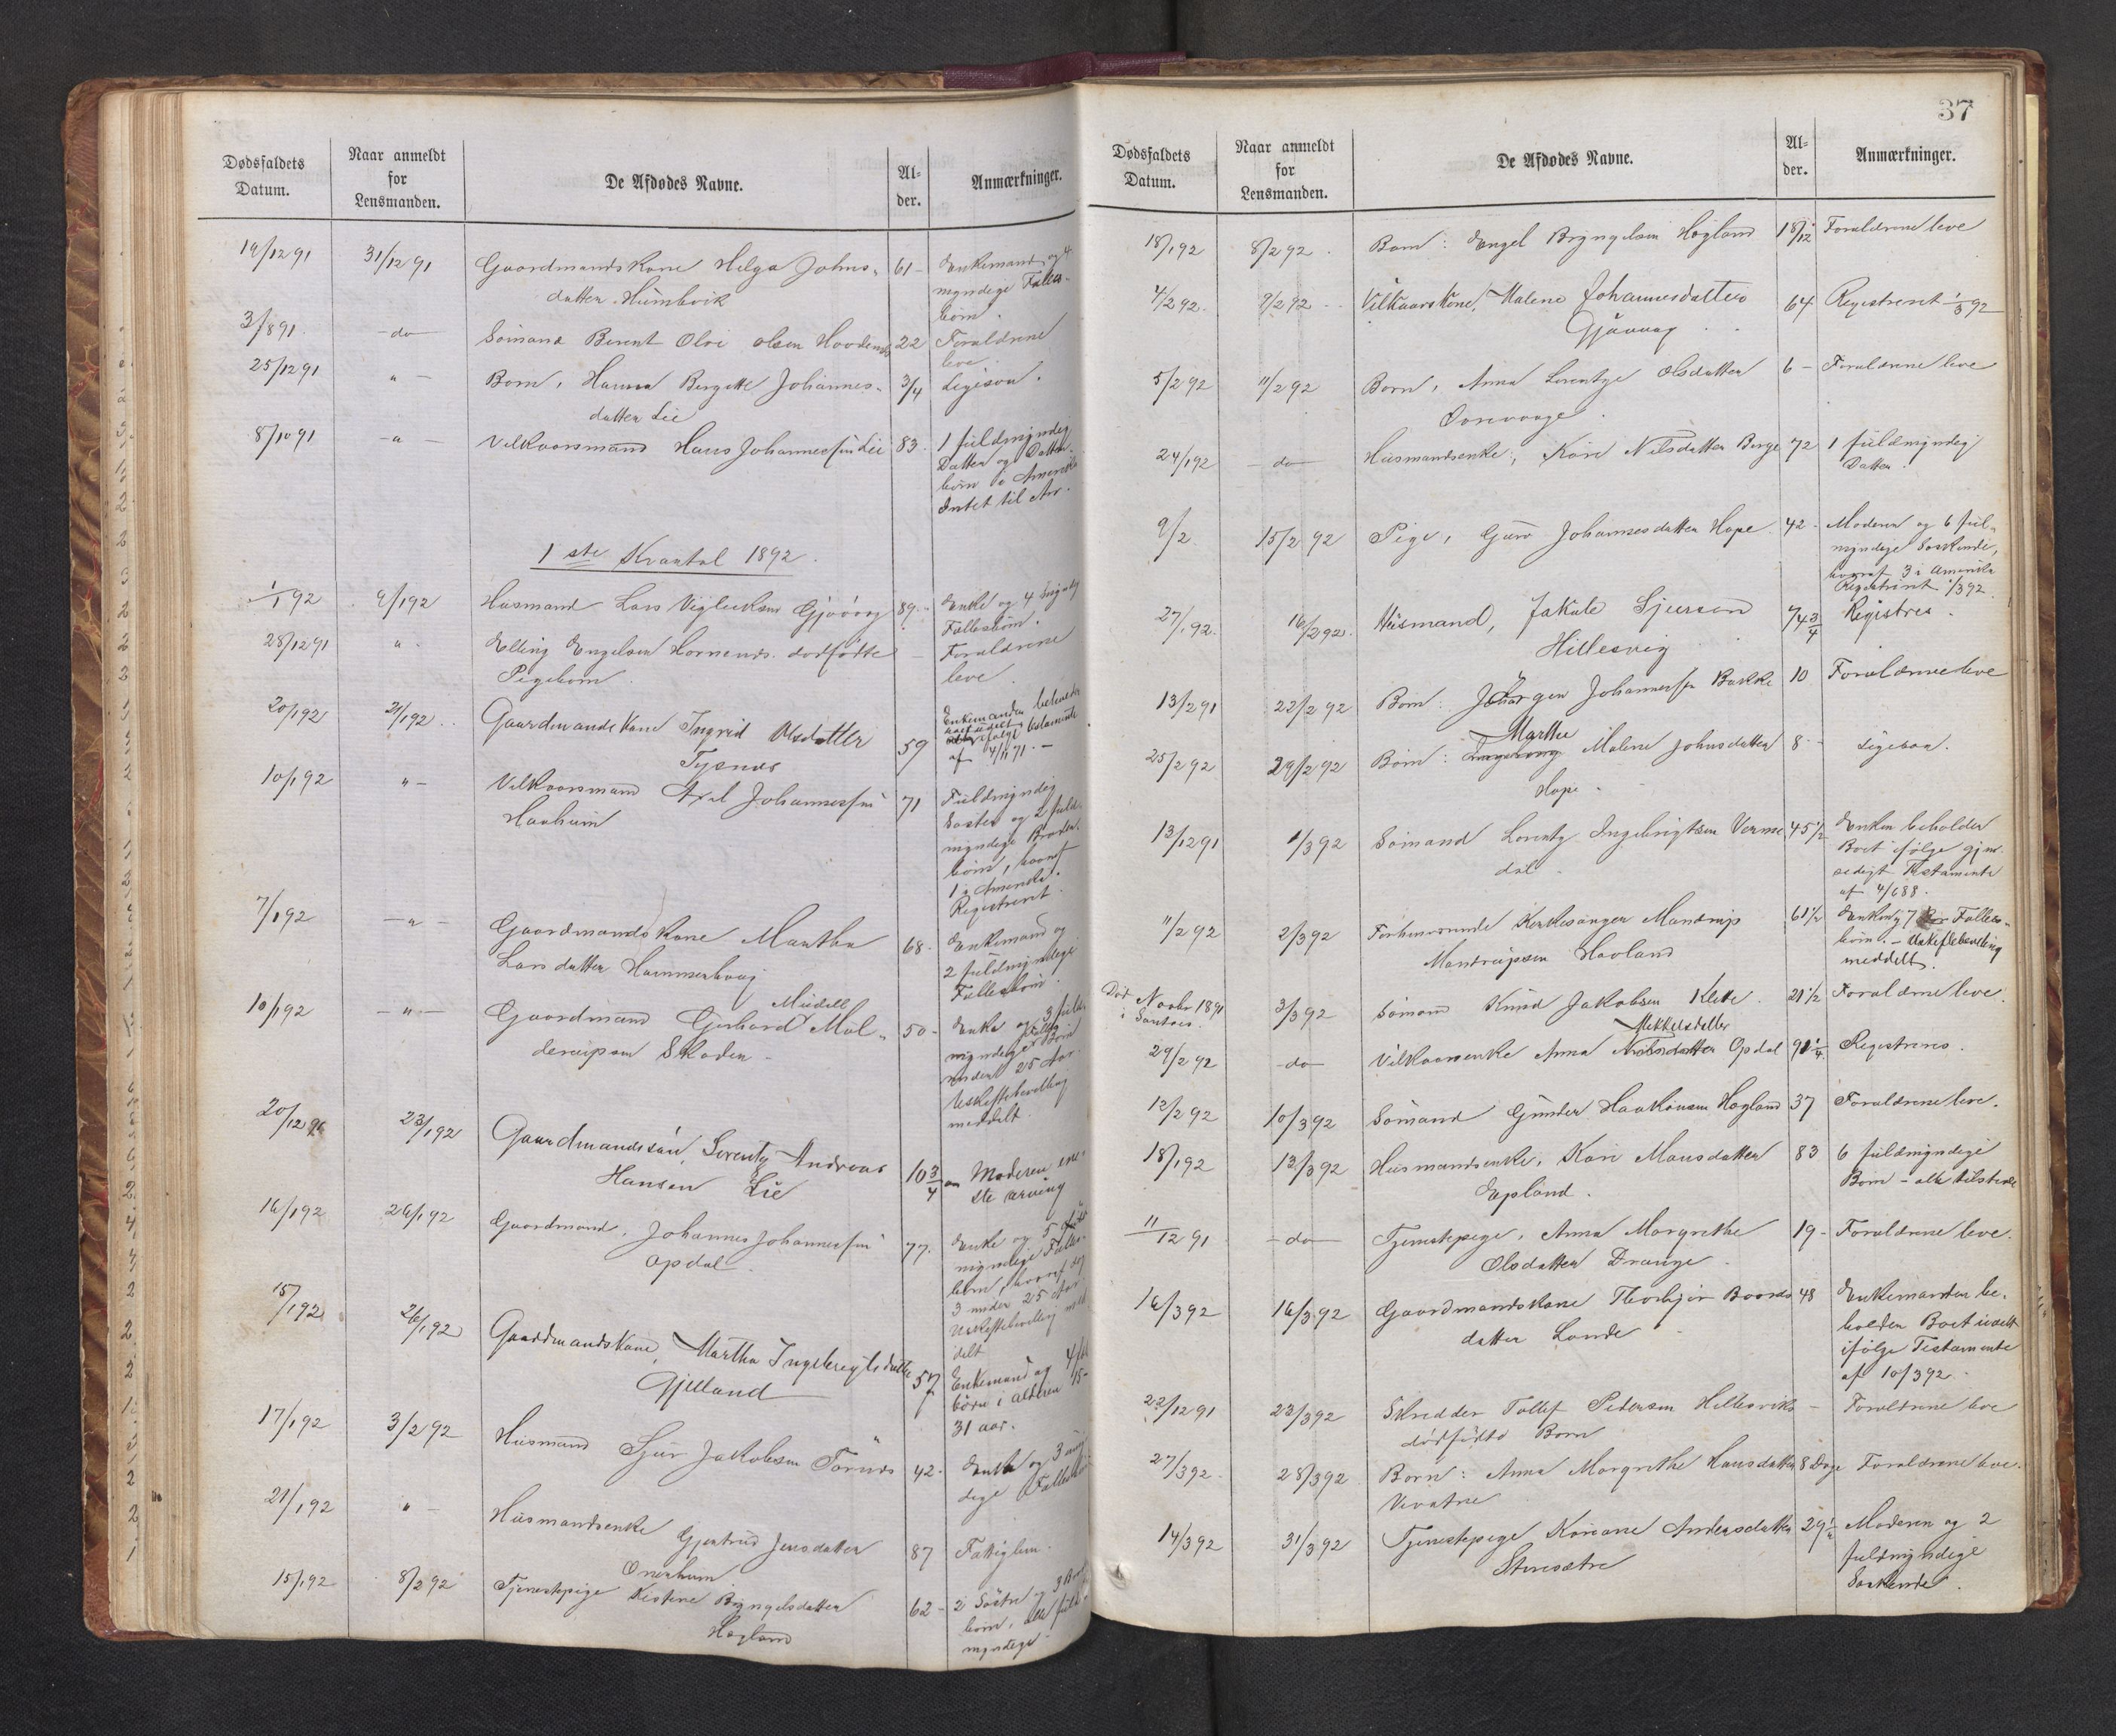 Dødsfaldets Datum.
Naar anmeldt for Lensmanden.
De Afdødes Navne.
Al-der.
Anmærkninger.
19/12 91 31/12 91 Gaardmandskone Helga Johns- 61- Enkemand og 4
datter Humlevik myndige Fælles-
børn.
3/8 91 -do- Sømand Berent Olai Olsen Hovdenes 22 Forældrene
leve.
25/12 91 " - Barn, Hanna Bergitte Johannes- 3/4 Ligesaa.
datter Lie
8/10 91 -"- Vilkaarsmand Hans Johannessøn Lie 83. 1 fuldmyndig
Datter og Datter-
børn i Amerika
Intet til Arv.
1ste Kvartal 1892.
1/1 92 9/1 92 Husmand Lars Vigleiksen Gjøvaag 89. Enke og 4 myndig
Fællesbørn.
28/12 91 " - Elling Engelsen Hornenes. dødfødte - Forældrene
Pigebarn. leve.
20/1 92 21/1 92 .. Gaardmandskone Ingrid Olsdatter 59 Enkemanden beholder
Tysnes uskiftet ifølge testamente
af 4/11 71. -
10/1 92 "- Vilkaarsmand Axel Johannessøn 71 Fuldmyndig
Haaheim Søster og 2 fuld-
myndige Broder-
børn, hvoraf
1 i Amerika.
Registreret.
7/1 92 -"- Gaardmandskone Martha 68. Enkemand og
Larsdatter Hammerhaug 2 fuldmyndige
Fællesbørn.
10/1 92 -"- Gaardmand Gerhard Midell Mul- 50- Enke og 3 fuld-
dernipsen Skaden - myndige Fælles Børn
under 25 Aar.
Uskiftebevilling
meddelt.
20/12 91 23/1 92 Gaardmandssøn, Lorentz Andreas 10 3/4 Moderen ene-
Hansen Lie ste arving
16/1 92 26/1 92 Gaardmand, Johannes Johannessøn 77. Enke og 5
Opdal. myndige Fælles-
børn, hvoraf
3 under 25 Aar
Uskiftebevilling med-
delt
15/1 92 26/1 92 Gaardmandskone, Martha Ingebrigtsdatter 57 Enkemand og 4
Gjelland børn i alderen 15-
31 aar.
17/1 92 3/2 92 Husmand Sjur Jakobsen Tornes 42. Enke og 3
dige Fællesbørn
21/1 92 " - Husmandsenke Gjertrud Jensdatter 87 Fattiglem.
Onarheim
15/1 92 8/2 92 Tjenestepige Kistine Bryngelsdatter 62 - 2 Søstre og 3
Hogland børn, alle fuld-
myndige.
37
Dødsfaldets Datum.
Naar anmeldt for Lensmanden.
De Afdødes Navne.
Al-der.
Anmærkninger.
18/1 92 8/2 92. Barn: Engel Bryngelsen Hogland 18/12 Forældrene leve
4/2 92. 9/2 92 - Vilkaarskone, Malene Johannesdatter 64 Registreret 1/3 92
Gjøvaag
5/2 92 11/2 92 Barn, Anna Lorentze Olsdatter 6 - Forældrene leve
24/1 92 -do- Husmandsenke, Kari Nilsdatter Berge 72 1 fuldmyndig
Datter.
9/2 15/2 92 Pige, Guro Johannesdatter Hope 42 - Moderen og 6 ful-
myndige Søskende,
hvoraf 3 i Amerika
Registreret 1/3 92.
27/1 92. 16/2 92. Husmand, Jakob Sjursøn 74 3/4 Registres.
Hillesvig
13/2 91 22/2 92 Barn: Jørgen Johannessøn Bakke 10 Forældrene leve
Marthe
25/2 92 29/2 92 Barn: Ingeborg Malene Johnsdatter 8 - Ligesaa.
Hope
13/12 91 1/3 92 Sømand Lorentz Ingebrigtsen Verme 45 1/2 Enken beholder
dal Boet ifølge gjen-
sidigt Testamente
af 4/6 88.
11/2 92 2/3 92 Forhenværende Kirkesanger Mandrup 61 1/2 Enke og 7 Fælles-
Mandrupsen Havland børn. - Uskiftebevilling
meddelt.
Død Novbr 1891 3/3 92 Sømand Knud Jakobsen Kleve 21 1/2 Forældrene leve.
i Santos.
Mikkelsdatter
29/2 92 -do- Vilkaarsenke Anna Nilsdatter Opdal 91 1/4 Registreres.
12/2 92 10/3 92 Sømand Gunder Haakonsen Hogland 37 Forældrene leve.
18/1 92 12/3 92 Husmandsenke, Kari Monsdatter 83 6 fuldmyndige
Epland. Børn - alle tilstede
11/12 91 -do- Tjenestepige, Anna Margrethe 19 - Forældrene leve.
Olsdatter Drange
16/3 92 16/3 92 Gaardmandskone Thorbjør Baards 48 Enkemanden be-
datter Lande holder Boet udelt
ifølge Testamente
af 10/3 92.
22/12 91 23/3 92 Skredder Tollef Pedersen Hillesviks - Forældrene leve
dødfødte Barn
27/3 92. 28/3 92 Barn: Anna Margrethe Hansdatter 8 Dage Forældrene leve.
Vevatne
14/3 92 31/3 92 Tjenestepige Kariane Andersdatter 29 1/2 Moderen og 2
Stensætre fuldmyndige
Søskende.